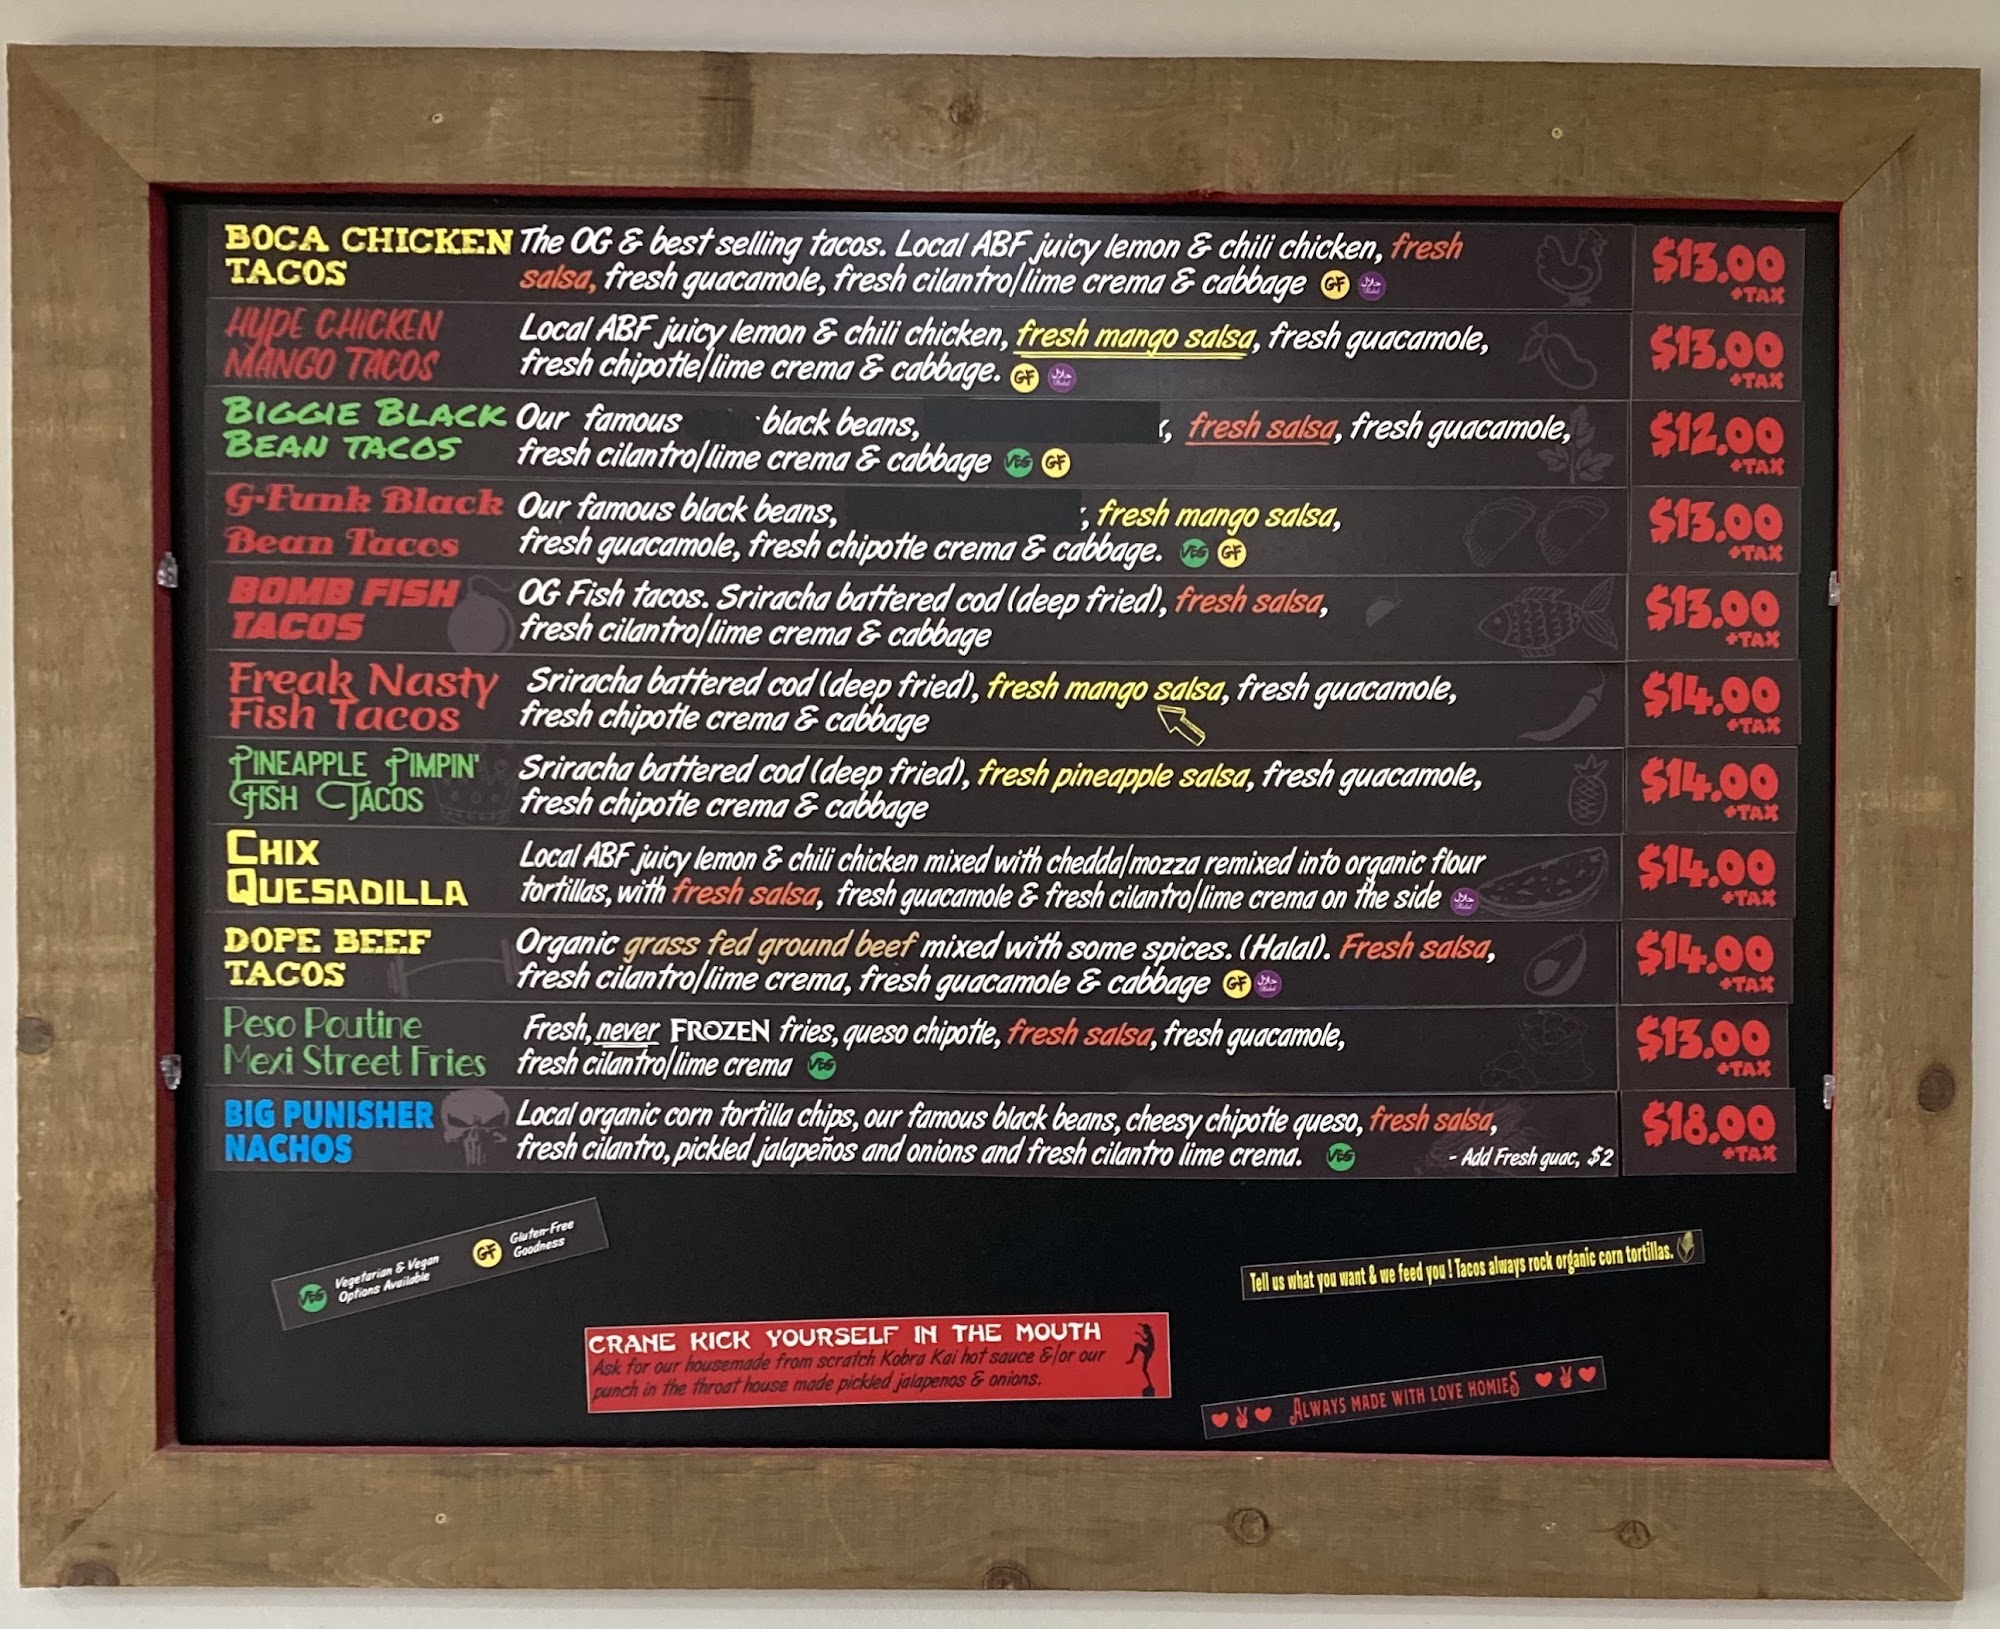 BOCA CHICKEN TACOS
The OG & best selling tacos. Local ABF juicy lemon & chili chicken, fresh
salsa, fresh guacamole, fresh cilantro/lime crema & cabbage GF حلال Halal
$13.00
+TAX
HYPE CHICKEN MANGO TACOS
Local ABF juicy lemon & chili chicken, fresh mango salsa, fresh guacamole,
fresh chipotle/lime crema & cabbage. GF حلال Halal
$13.00
+TAX
BIGGIE BLACK BEAN TACOS
Our famous black beans, fresh salsa, fresh guacamole,
fresh cilantro/lime crema & cabbage VEG GF
$12.00
+TAX
G-Funk Black Bean Tacos
Our famous black beans, fresh mango salsa,
fresh guacamole, fresh chipotle crema & cabbage. VEG GF
$13.00
+TAX
BOMB FISH TACOS
OG Fish tacos. Sriracha battered cod (deep fried), fresh salsa,
fresh cilantro/lime crema & cabbage
$13.00
+TAX
Freak Nasty Fish Tacos
Sriracha battered cod (deep fried), fresh mango salsa, fresh guacamole,
fresh chipotle crema & cabbage
$14.00
+TAX
PINEAPPLE PIMPIN' FISH TACOS
Sriracha battered cod (deep fried), fresh pineapple salsa, fresh guacamole,
fresh chipotle crema & cabbage
$14.00
+TAX
CHIX QUESADILLA
Local ABF juicy lemon & chili chicken mixed with chedda/mozza remixed into organic flour
tortillas, with fresh salsa, fresh guacamole & fresh cilantro/lime crema on the side حلال Halal
$14.00
+TAX
DOPE BEEF TACOS
Organic grass fed ground beef mixed with some spices. (Halal). Fresh salsa,
fresh cilantro/lime crema, fresh guacamole & cabbage GF حلال Halal
$14.00
+TAX
Peso Poutine Mexi Street Fries
Fresh, never FROZEN fries, queso chipotle, fresh salsa, fresh guacamole,
fresh cilantro/lime crema VEG
$13.00
+TAX
BIG PUNISHER NACHOS
Local organic corn tortilla chips, our famous black beans, cheesy chipotle queso, fresh salsa,
fresh cilantro, pickled jalapeños and onions and fresh cilantro lime crema. VEG - Add Fresh guac, $2
$18.00
+TAX
VEG Vegetarian & Vegan
Options Available
GF Gluten-Free
Goodness
Tell us what you want & we feed you ! Tacos always rock organic corn tortillas.
CRANE KICK YOURSELF IN THE MOUTH
Ask for our housemade from scratch Kobra Kai hot sauce &/or our
punch in the throat house made pickled jalapenos & onions.
ALWAYS MADE WITH LOVE HOMIES